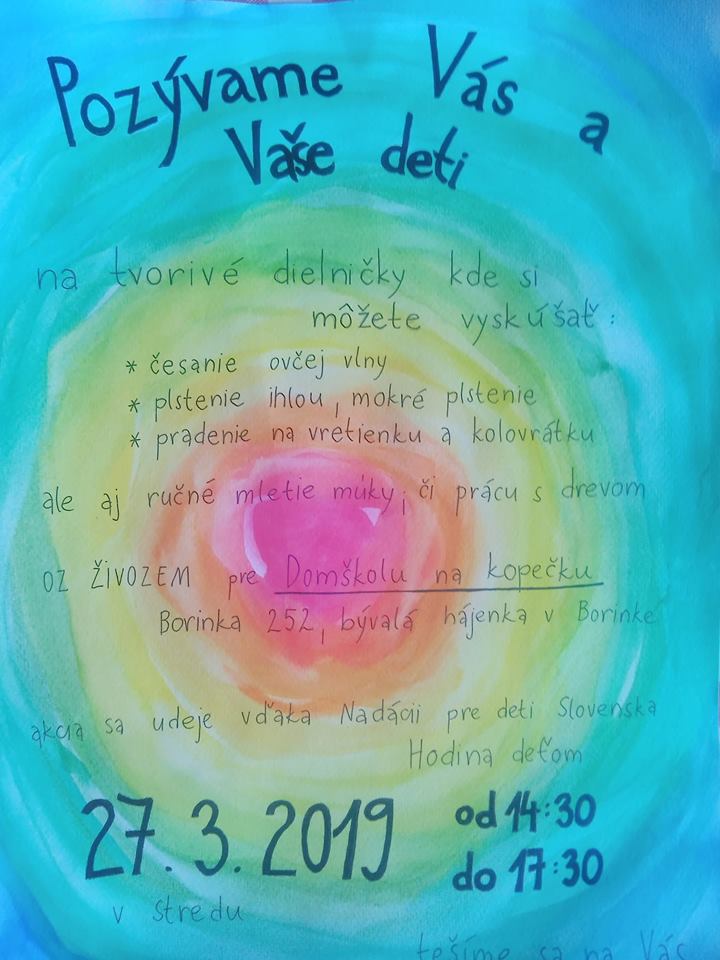 Pozývame Vás a
Vaše deti
na tvorivé dielničky kde si
môžete vyskúšať:
* česanie ovčej vlny
* plstenie ihlou, mokré plstenie
* pradenie na vretienku a kolovrátku
ale aj ručné mletie múky, či prácu s drevom
OZ ŽIVOZEM pre Domškolu na kopečku
Borinka 252, bývalá hájenka v Borinke
akcia sa udeje vďaka Nadácii pre deti Slovenska
Hodina deťom
27. 3. 2019 od 14:30
do 17:30
v stredu
tešíme sa na Vás